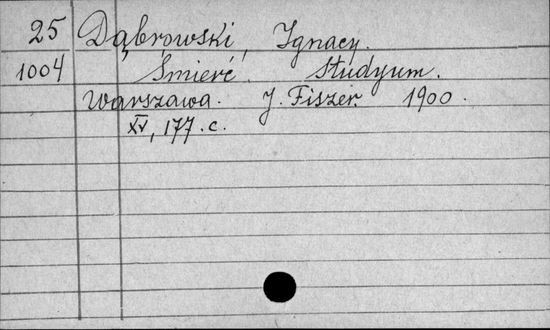 25 Dąbrowski, Ignacy.
1004 Śmierć. Studyum.
Warszawa. J. Fiszer. 1900.
XV, 177. c.